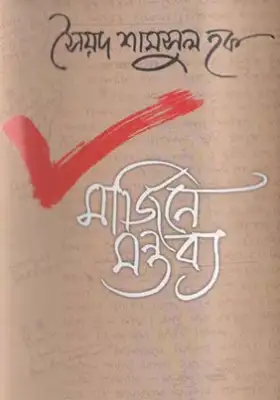 সৈয়দ শামসুল হক
মার্জিনে
মন্তব্য